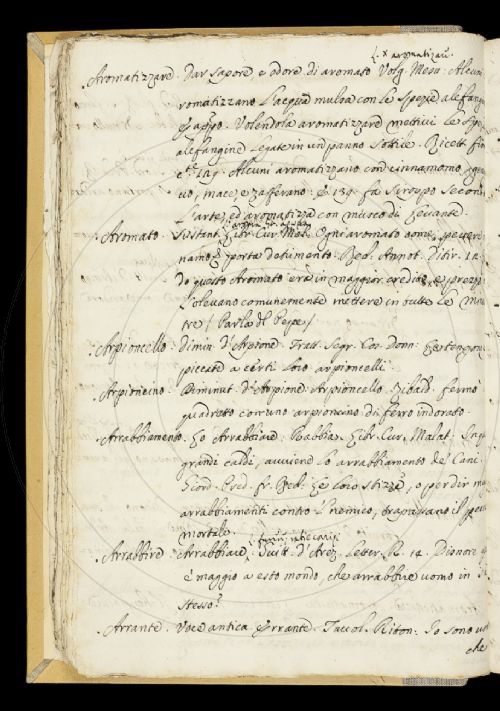 x aromatizar.
Aromatizzare. Dar sapore e odore di aromato Volg. Mesu: Alcuni
romatizzano l'acqua mulsa con le spezie alefangin
appo: Volendola aromatizzare mettivi le spe
alefangine legate in un panno sottile. Ricett. Fior
129. Alcuni aromatizzano con cinnamomo,
vo, mace, e zafferano. E 139. fa siroppo secon
l'arte, ed aromatizza con musco di Levante
Aromato. Sustant. Libr. Cur. Mal. Ogni aromato come, spezie
nano, porta detumento. Red. Annot. Ditir. 12
do questo Aromato era in maggior credito e prezzo
soleuano comunemente mettere in tutte le
tre / Parla del Pepe /
Arpioncello. Dimin. d'Arpione. Tratt. Segr. Cos. Donn:
piccate a certi loro arpioncelli.
Arpioncino. Diminut. d'Arpione. Arpioncello. Zibald.
quadretto con uno arpioncino di ferro indorato
Arrabbiamento. Lo Arrabbiare. Rabbia. Libr. Cur. Malat:
grandi caldi, avviene lo arrabbiamento de' Cani.
Giord. Pred. Fr. Red: Le loro stizze, o per dir
arrabbiamenti contro i nemico, trapassano il
mortale.
Arrabbire. Arrabbiare. Guitt. d'Arez. Letter. R. 14. Dionore
è maggio a esto mondo, che arrabbire uomo in
stesso?
Arrante. Voce antica Errante. Tavol. Riton: Io sono
che